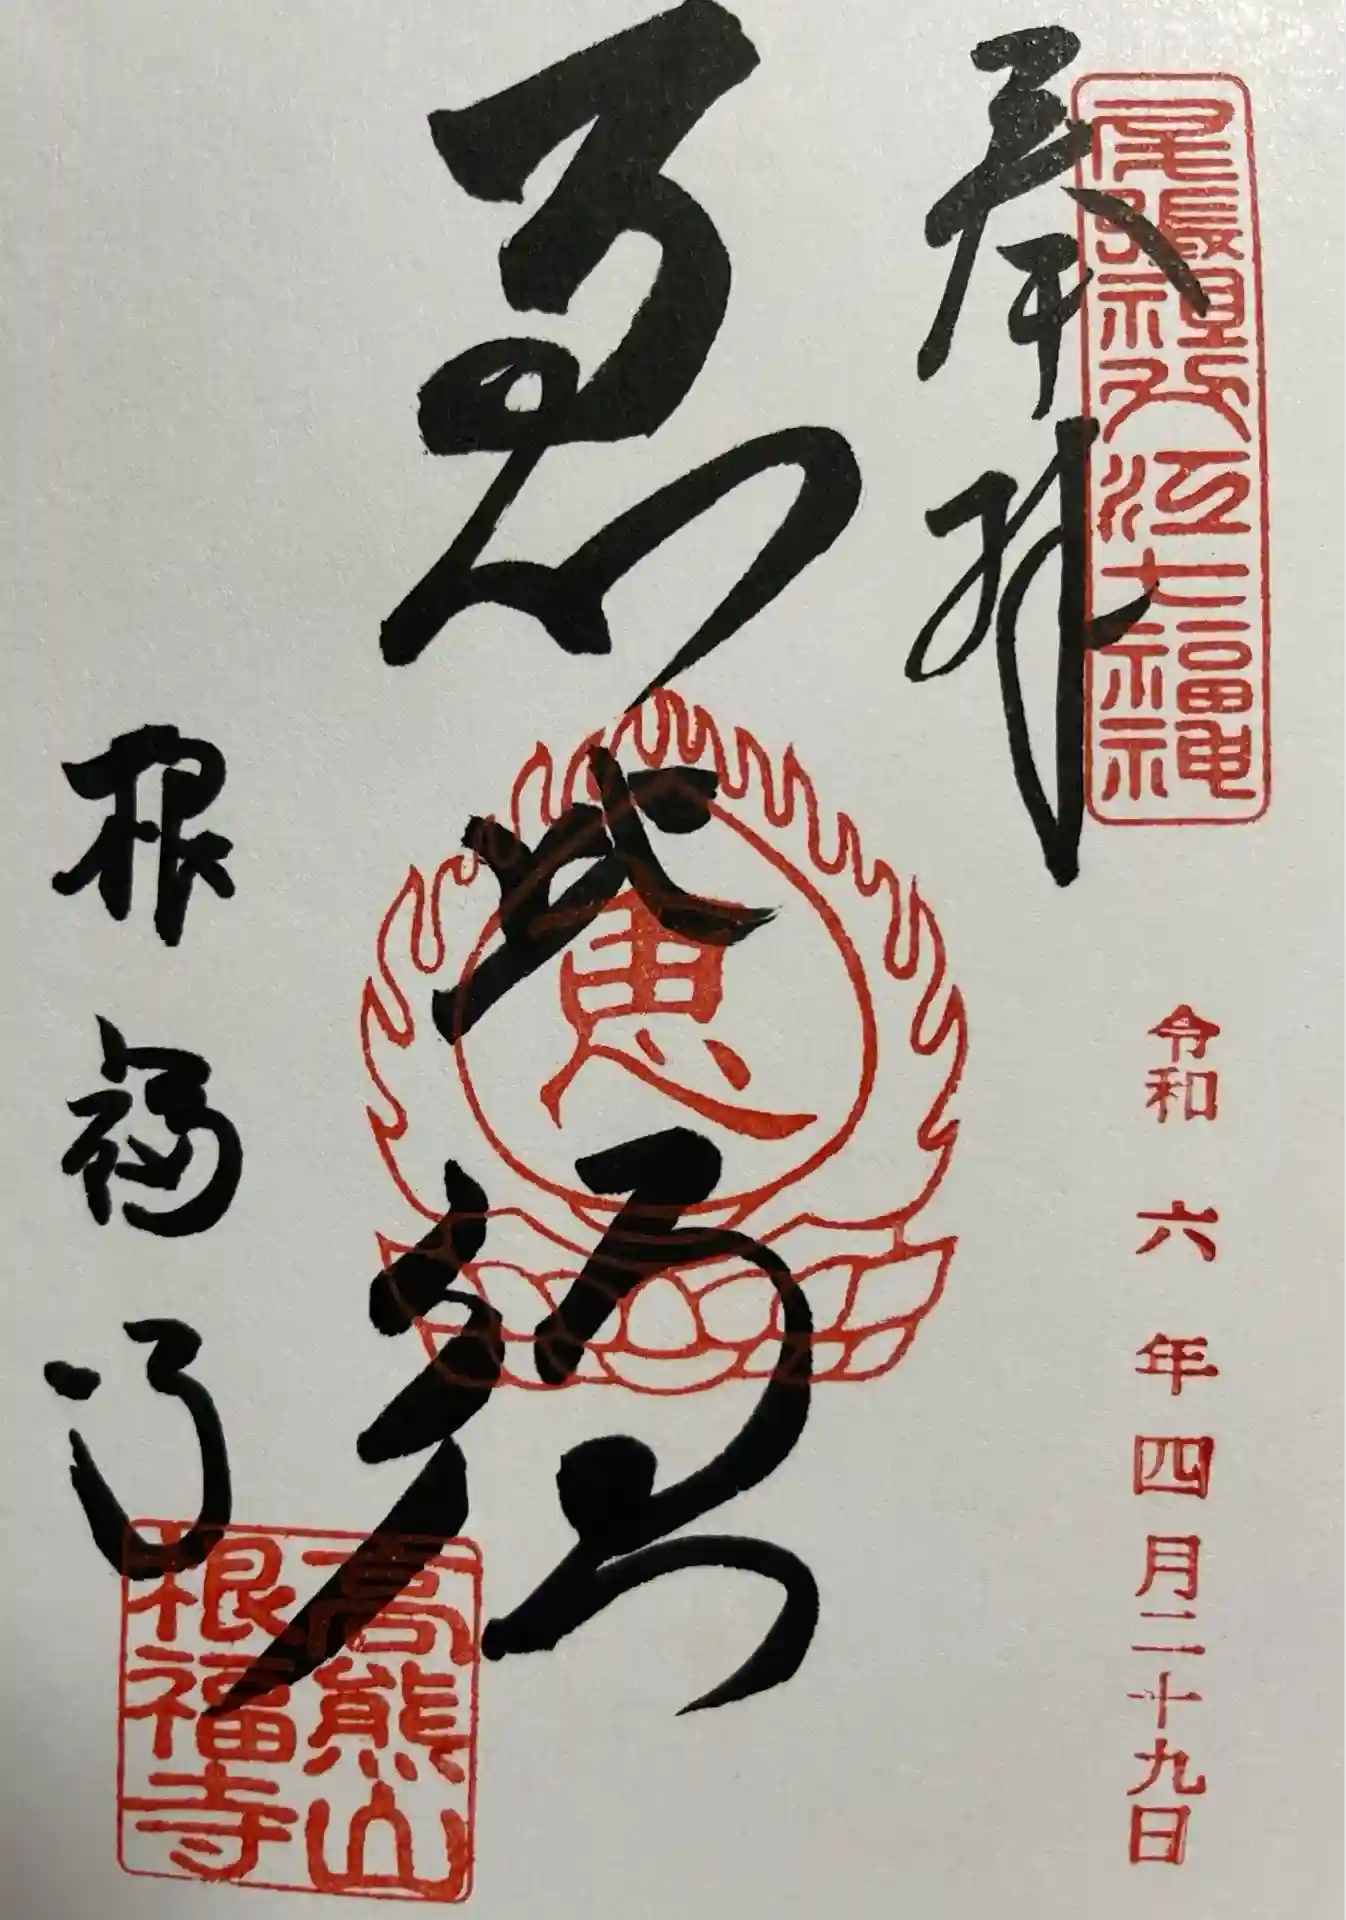 奉拝
尾張
江七福神
令和六年四月二十九日
恵比須
恵
根福寺
高熊山
根福寺